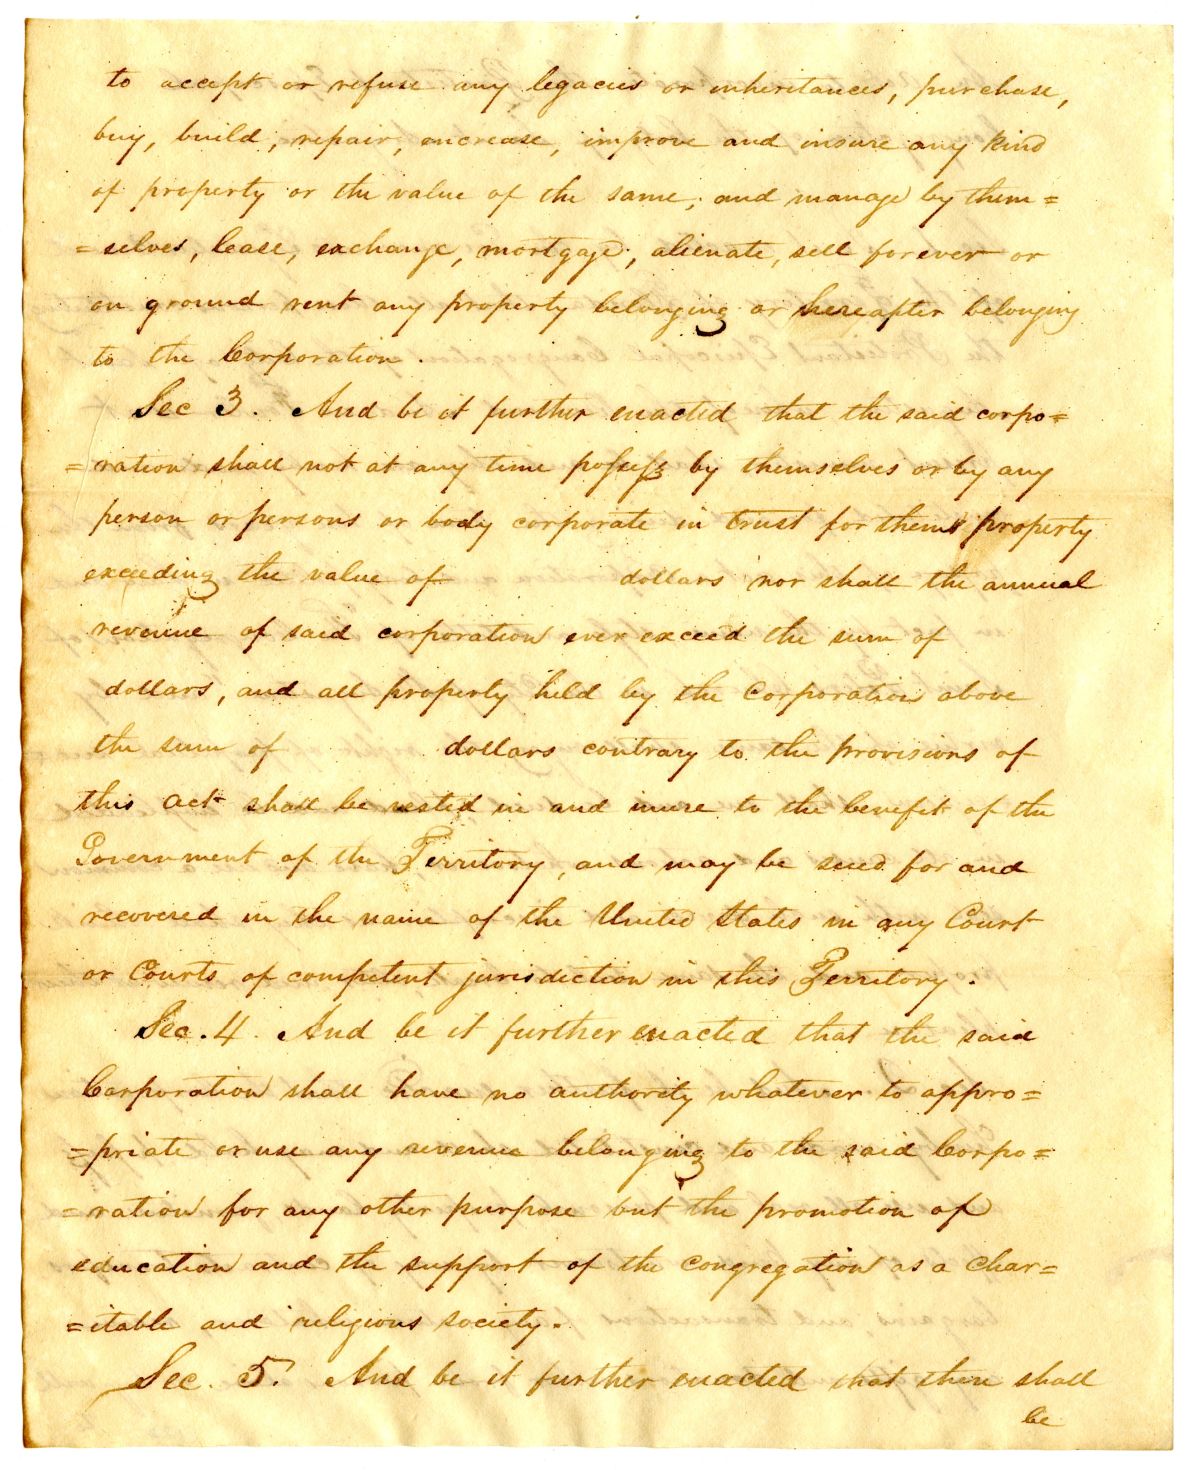 to accept or refuse any legacies or inheritances, purchase,
buy, build, repair, encrease, improve and insure any kind
of property or the value of the same, and manage by them=
=selves, lease, exchange, mortgage, alienate, sell forever or
on ground rent any property belonging or hereafter belonging
to the Corporation.
Sec 3. And be it further enacted that the said corpo=
=ration shall not at any time possess by themselves or by any
person or persons or body corporate in trust for them property
exceeding the value of dollars nor shall the annual
revenue of said corporation ever exceed the sum of
dollars, and all property held by the Corporation above
the sum of dollars contrary to the provisions of
this act shall be vested in and inure to the benefit of the
Government of the Territory, and may be sued for and
recovered in the name of the United States in any Court
or Courts of competent jurisdiction in this Territory.
Sec. 4. And be it further enacted that the said
Corporation shall have no authority whatever to appro=
=priate or use any revenue belonging to the said Corpo=
=ration for any other purpose but the promotion of
education and the support of the congregation as a char=
=itable and religious society.
Sec. 5. And be it further enacted that there shall
be